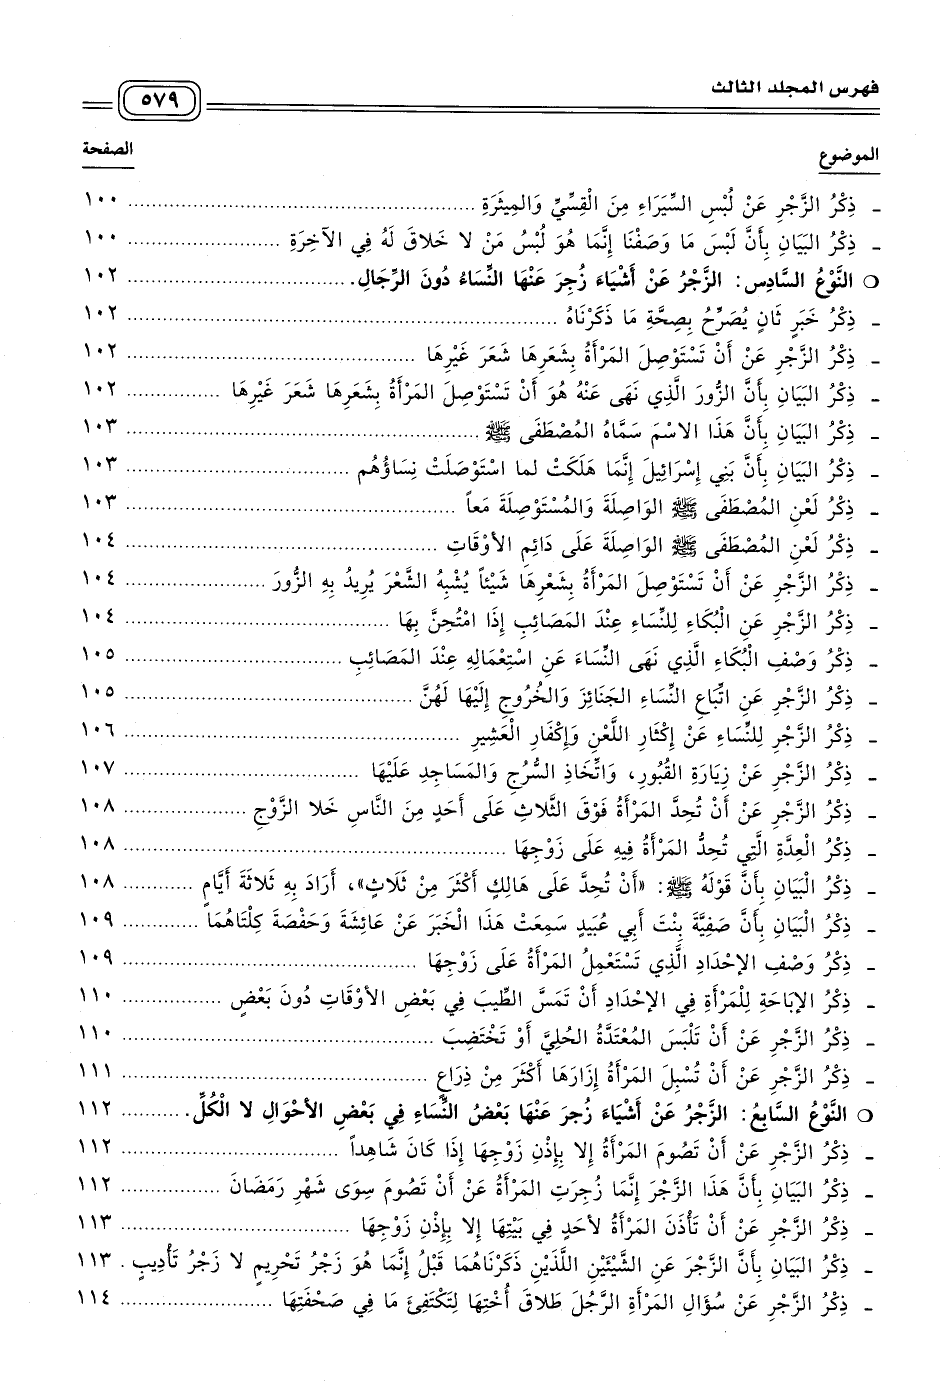 فهرس المجلد الثالث
٥٧٩
الموضوع الصفحة
- ذِكْرُ الزَّجْرِ عَنْ لُبْسِ السِّيَرَاءِ مِنَ الْقِسِّيِّ وَالمِيثَرَةِ ........ ١٠٠
- ذِكْرُ البَيَانِ بِأَنَّ لَبْسَ مَا وَصَفْنَا إِنَّمَا هُوَ لُبْسُ مَنْ لا خَلاقَ لَهُ فِي الآخِرَةِ ........ ١٠٠
○ النَّوْعُ السَّادِس: الزَّجْرُ عَنْ أَشْيَاءَ زُجِرَ عَنْهَا النِّسَاءُ دُونَ الرِّجَالِ. ........ ١٠٢
- ذِكْرُ خَبَرٍ ثَانٍ يُصَرِّحُ بِصِحَّةِ مَا ذَكَرْنَاهُ ........ ١٠٢
- ذِكْرُ الزَّجْرِ عَنْ أَنْ تَسْتَوْصِلَ المَرْأَةُ بِشَعَرِهَا شَعَرَ غَيْرِهَا ........ ١٠٢
- ذِكْرُ البَيَانِ بِأَنَّ الزُّورَ الَّذِي نَهَى عَنْهُ هُوَ أَنْ تَسْتَوْصِلَ المَرْأَةُ بِشَعَرِهَا شَعَرَ غَيْرِهَا ........ ١٠٢
- ذِكْرُ البَيَانِ بِأَنَّ هَذَا الاسْمَ سَمَّاهُ المُصْطَفَى ﷺ ........ ١٠٣
- ذِكْرُ البَيَانِ بِأَنَّ بَنِي إِسْرَائِيلَ إِنَّمَا هَلَكَتْ لما اسْتَوْصَلَتْ نِسَاؤُهُم ........ ١٠٣
- ذِكْرُ لَعْنِ المُصْطَفَى ﷺ الوَاصِلَةَ وَالمُسْتَوْصِلَةَ مَعاً ........ ١٠٣
- ذِكْرُ لَعْنِ المُصْطَفَى ﷺ الوَاصِلَةَ عَلَى دَائِمِ الأوْقَاتِ ........ ١٠٤
- ذِكْرُ الزَّجْرِ عَنْ أَنْ تَسْتَوْصِلَ المَرْأَةُ بِشَعَرِهَا شَيْئاً يُشْبِهُ الشَّعْرَ يُرِيدُ بِهِ الزُّورَ ........ ١٠٤
- ذِكْرُ الزَّجْرِ عَنِ الْبُكَاءِ لِلنِّسَاءِ عِنْدَ المَصَائِبِ إِذَا امْتُحِنَّ بِهَا ........ ١٠٤
- ذِكْرُ وَصْفِ الْبُكَاءِ الَّذِي نَهَى النِّسَاءَ عَنِ اسْتِعْمَالِهِ عِنْدَ المَصَائِبِ ........ ١٠٥
- ذِكْرُ الزَّجْرِ عَنِ اتِّبَاعِ النِّسَاءِ الجَنَائِزَ وَالخُرُوجِ إِلَيْهَا لَهُنَّ ........ ١٠٥
- ذِكْرُ الزَّجْرِ لِلنِّسَاءِ عَنْ إِكْثَارِ اللَّعْنِ وَإِكْفَارِ الْعَشِيرِ ........ ١٠٦
- ذِكْرُ الزَّجْرِ عَنْ زِيَارَةِ القُبُورِ، وَاتِّخَاذِ السُّرُجِ وَالمَسَاجِدِ عَلَيْهَا ........ ١٠٧
- ذِكْرُ الزَّجْرِ عَنْ أَنْ تُحِدَّ المَرْأَةُ فَوْقَ الثَّلاثِ عَلَى أَحَدٍ مِنَ النَّاسِ خَلا الزَّوْجِ ........ ١٠٨
- ذِكْرُ الْعِدَّةِ الَّتِي تُحِدُّ المَرْأَةُ فِيهِ عَلَى زَوْجِهَا ........ ١٠٨
- ذِكْرُ الْبَيَانِ بِأَنَّ قَوْلَهُ ﷺ: «أَنْ تُحِدَّ عَلَى هَالِكٍ أَكْثَرَ مِنْ ثَلَاثٍ»، أَرَادَ بِهِ ثَلاثَةَ أَيَّامٍ ........ ١٠٨
- ذِكْرُ الْبَيَانِ بِأَنَّ صَفِيَّةَ بِنْتَ أَبِي عُبَيدٍ سَمِعَتْ هَذَا الْخَبَرَ عَنْ عَائِشَةَ وَحَفْصَةَ كِلْتَاهُمَا ........ ١٠٩
- ذِكْرُ وَصْفِ الإحْدَادِ الَّذِي تَسْتَعْمِلُ المَرْأَةُ عَلَى زَوْجِهَا ........ ١٠٩
- ذِكْرُ الإبَاحَةِ لِلْمَرْأَةِ فِي الإحْدَادِ أَنْ تَمَسَّ الطِّيبَ فِي بَعْضِ الأوْقَاتِ دُونَ بَعْضٍ ........ ١١٠
- ذِكْرُ الزَّجْرِ عَنْ أَنْ تَلْبَسَ المُعْتَدَّةُ الحُلِيَّ أَوْ تَخْتَضِبَ ........ ١١٠
- ذِكْرُ الزَّجْرِ عَنْ أَنْ تُسْبِلَ المَرْأَةُ إِزَارَهَا أَكْثَرَ مِنْ ذِرَاعٍ ........ ١١١
○ النَّوْعُ السَّابعُ: الزَّجْرُ عَنْ أَشْيَاءَ زُجِرَ عَنْهَا بَعْضُ النِّسَاءِ فِي بَعْضِ الأحْوَالِ لا الْكُلِّ. ........ ١١٢
- ذِكْرُ الزَّجْرِ عَنْ أَنْ تَصُومَ المَرْأَةُ إِلا بِإِذْنِ زَوْجِهَا إِذَا كَانَ شَاهِداً ........ ١١٢
- ذِكْرُ البَيَانِ بِأَنَّ هَذَا الزَّجْرَ إِنَّمَا زُجِرَتِ المَرْأَةُ عَنْ أَنْ تَصُومَ سِوَى شَهْرِ رَمَضَانَ ........ ١١٢
- ذِكْرُ الزَّجْرِ عَنْ أَنْ تَأْذَنَ المَرْأَةُ لأحَدٍ فِي بَيْتِهَا إِلا بِإِذْنِ زَوْجِهَا ........ ١١٣
- ذِكْرُ البَيَانِ بِأَنَّ الزَّجْرَ عَنِ الشَّيْئَيْنِ اللَّذَيْنِ ذَكَرْنَاهُمَا قَبْلُ إِنَّمَا هُوَ زَجْرُ تَحْرِيمٍ لا زَجْرُ تَأْدِيبٍ . ١١٣
- ذِكْرُ الزَّجْرِ عَنْ سُؤَالِ المَرْأَةِ الرَّجُلَ طَلاقَ أُخْتِهَا لِتَكْتَفِئَ مَا فِي صَحْفَتِهَا ........ ١١٤